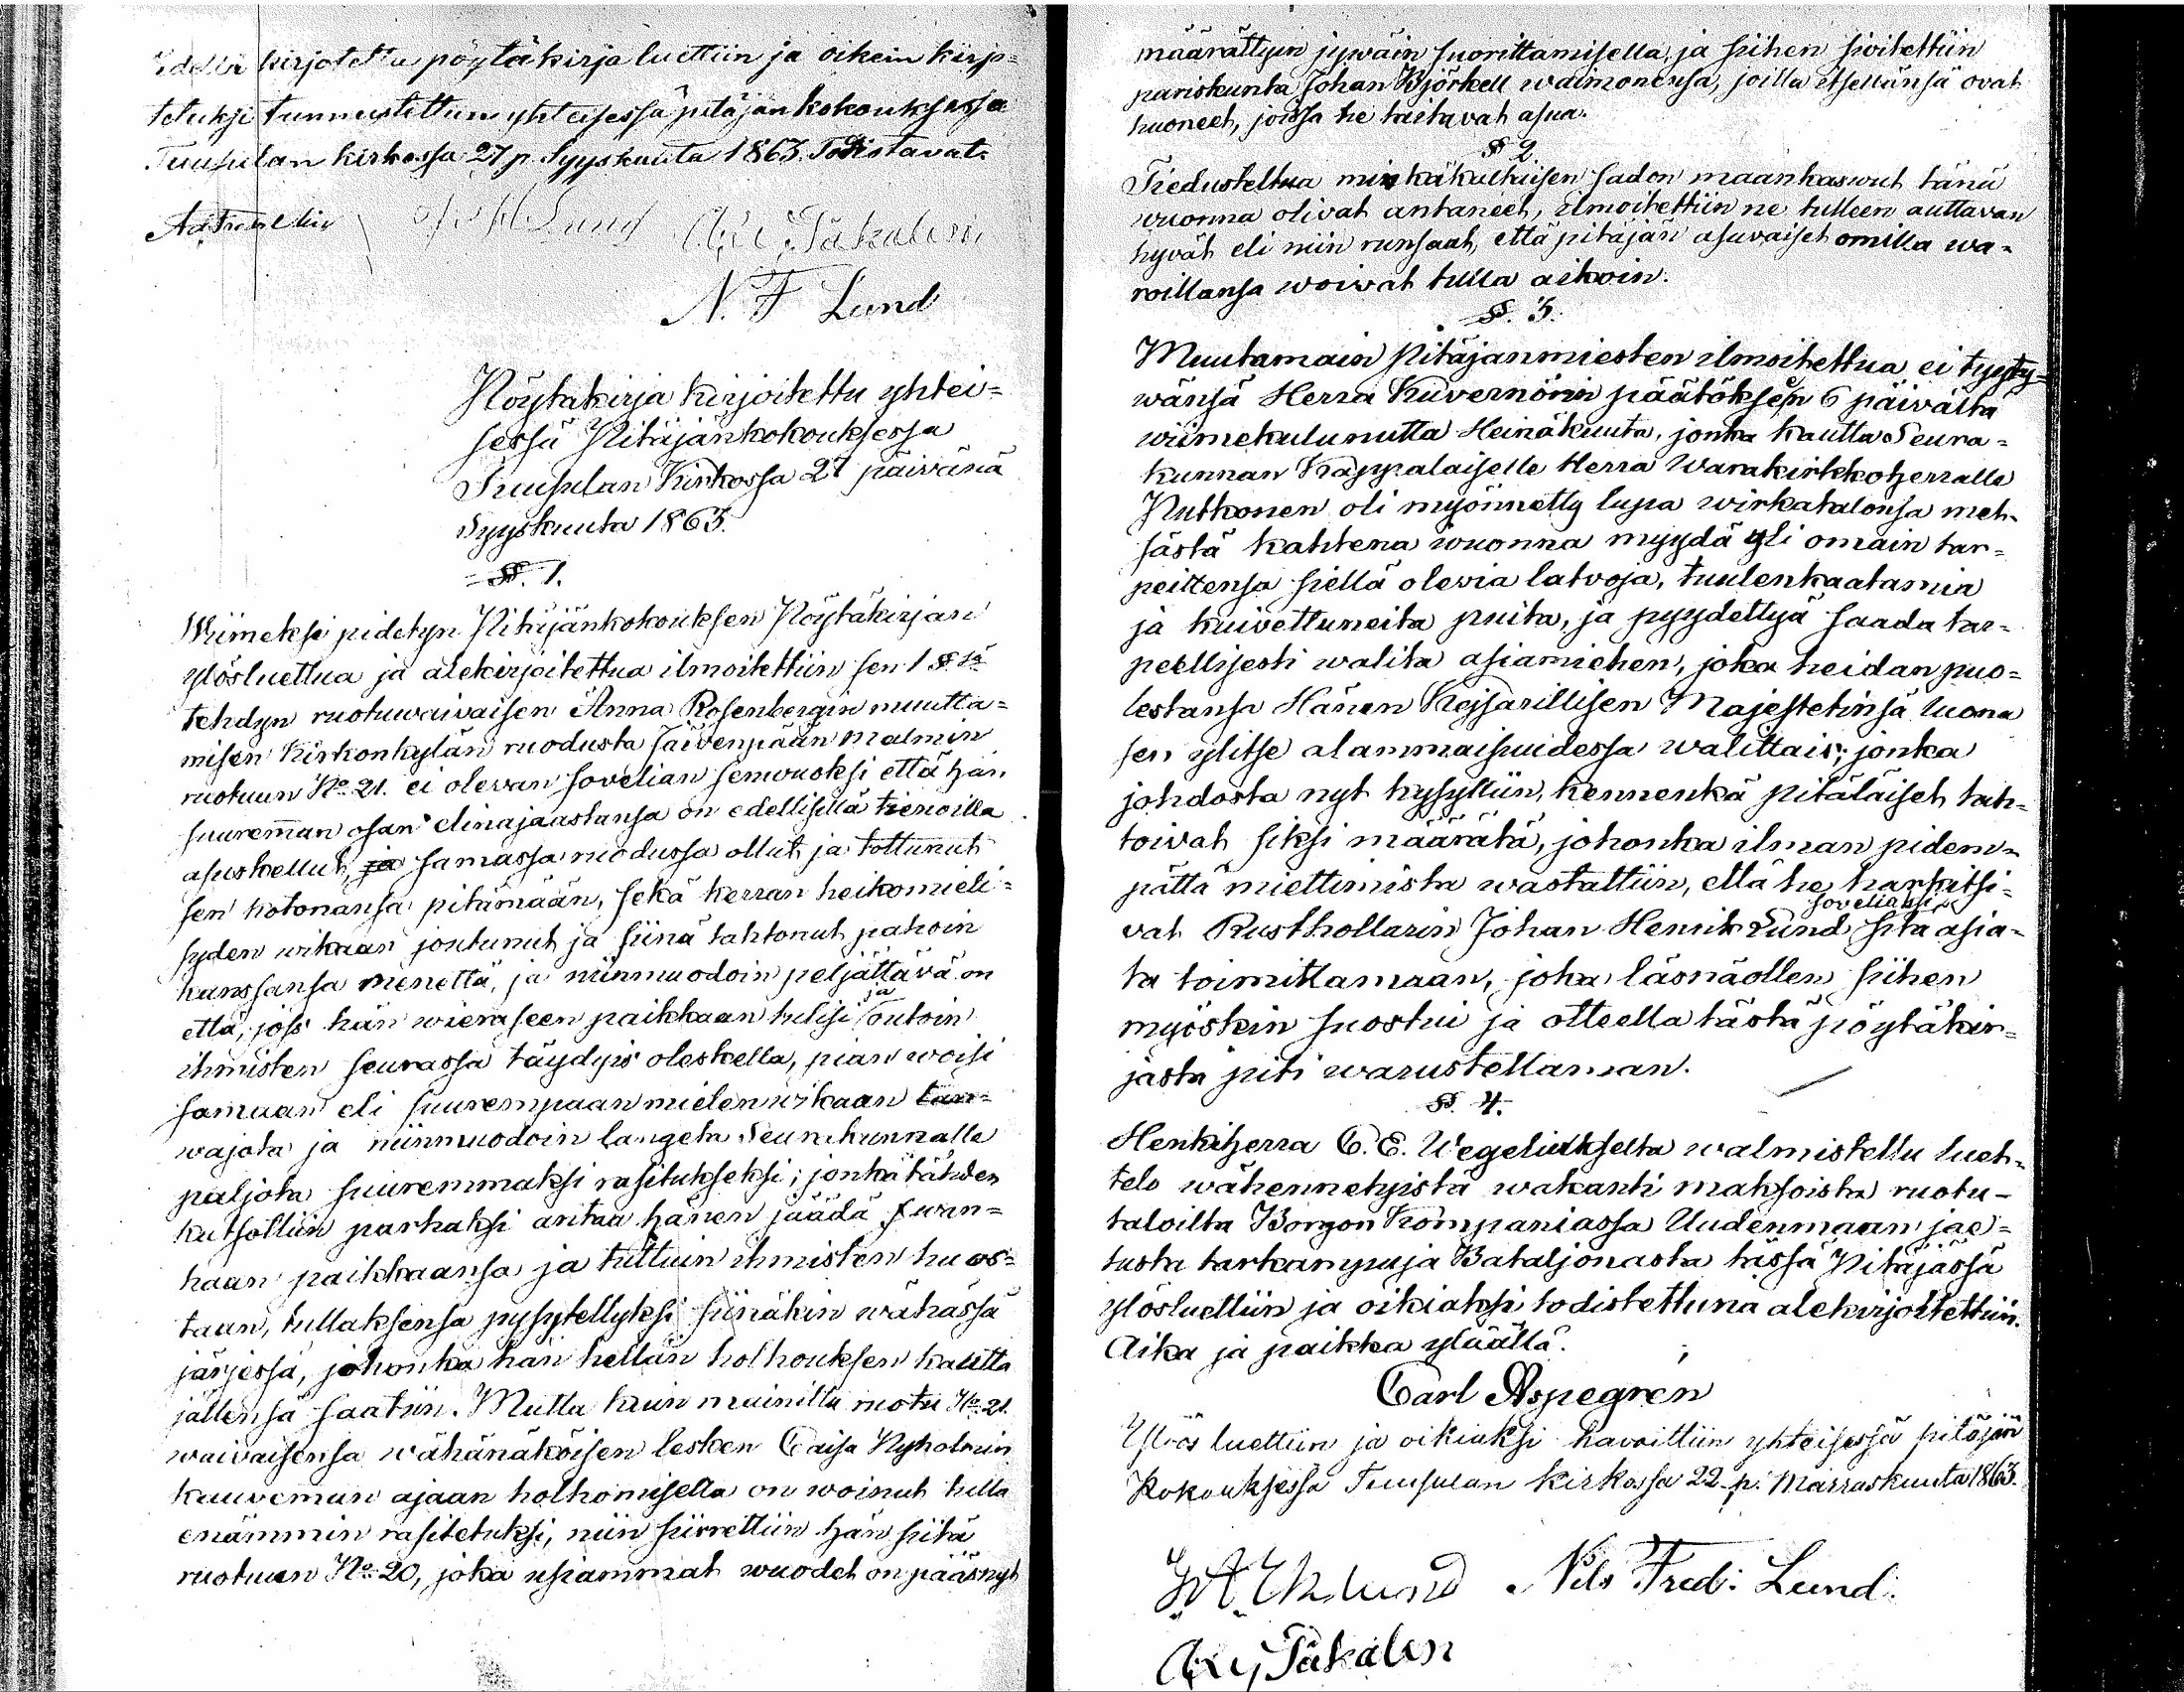 Edellä kirjotettu pöytäkirja luettiin ja oikein kirjo=
tetuksi tunnustettiin yhteisessä pitäjän kokouksessa
Tuusulan kirkossa 27 p. Syyskuuta 1863. Todistavat.
Lund
N. F Lund
Pöytäkirja kirjoitettu yhtei=
sessä Pitäjänkokouksessa
Tuusulan Kirkossa 27 päivänä
Syyskuuta 1863.
§. 1.
Wiimeksi pidetyn Pitäjänkokouksen Pöytäkirjan
ylösluettua ja alekirjoitettua ilmoitettiin sen 1 §:sä
tehdyn ruotuwaivaisen Anna Rosenbergin muutta=
misen Kirkonkylän ruodusta Järvenpään Malmin
ruotuun No 21. ei olevan sovelian senwuoksi että hän
suuremman osan elinajaastansa on edellisillä tienoilla
asuskellut, ja samassa ruodussa ollut ja tottunut
sen kotonansa pitämään, sekä kerran heikomieli=
syden wikaan joutunut ja siinä tahtonut pahoin
kanssansa menettä, ja niinmuodoin peljättävä on
että, jos hän wieraseen paikkaan tulisi ja outoin
ihmisten seurassa täydyis oleskella, pian woisi
samaan eli suurempaan mielen wikaan tän=
wajota ja niinmuodoin langeta Seurakunnalle
paljota suuremmaksi rasitukseksi; jonkatähden
katsottiin parhaksi antaa hänen jäädä s wan=
haan paikkaansa ja tuttuin ihmisten huos=
taan, tullaksensa pysytellyksi siinäkin wähässä
järjessä, johonka hän hellän holhouksen kautta
jällensä saatiin. Mutta kuin mainittu ruotu No 21.
waivaisensa wähänäköisen lesken Caisa Nyholmin
kauveman ajaan holhomisella on woinut tulla
enämmin rasitetuksi, niin siirrettiin hän siitä
ruotuun No 20, joka usiammat wuodet on päässyt
määrättyin jywäin suorittamisella, ja siihen sioitettiin
pariskunta Johan Björkell waimonensa, joilla itsellänsä ovat
huoneet, joissa he taitavat asua.
§ 2
Tiedusteltua minkäkaltaisen sadon maankaswut tänä
wuonna olivat antaneet, ilmoitettiin ne tulleen auttavan
hyvät eli niin runsaat, että pitäjän asuvaiset omilla wa=
roillansa woivat tulla aikoin.
§. 3.
Muutamain Pitäjänmiesten ilmoitettua ei tyyty=
wänsä Herra Kuvernörin päätöksen 6 päivältä
wiimekulunutta Heinäkuuta, jonka kautta Seura=
kunnan Kappalaiselle Herra Warakirkkoherralle
Putkonen oli myönnetty lupa wirkatalonsa met=
sästä kahtena wuonna myydä yli omain tar=
peittensa siellä olevia latvoja, tuulenkaatamia
ja kuivettuneita puita, ja pyydettyä saada tar=
peellisesti walita asiamiehen, joka heidan puo=
lestansa Hänen Kejsarillisen Majestetinsä luona
sen ylitse alammaisuudessa walittais; jonka
johdosta nyt kysyttiin, kennenkä pitäläiset tah=
toivat siksi määrätä, johonka ilman pidem=
pättä miettimistä wastattiin, että he harkitsi=
vat Rusthollarin Johan Henrik Lund soveliaksi sitä asia=
ta toimittamaan, joka läsnäollen siihen
myöskin suostui ja otteella tästä pöytäkir=
jasta piti warustettaman.
§. 4.
Henkiherra C. E. Wegeliukselta walmistettu luet=
telo wähennetyistä wakanti maksoista ruotu-
taloilta Borgon Kompaniassa Uudenmaan jae=
tusta tarkampuja Bataljonasta tässä Pitäjässä
ylösluettiin ja oikiaksi todistettuna alekirjoitettiin.
Aika ja paikka yläällä.
Carl Aspegren
Ylös luettiin ja oikiaksi havaittiin yhteisessä pitäjän
Kokouksessa Tuusulan kirkossa 22 p. Marraskuuta 1863.
Eklund Nils Fred: Lund.